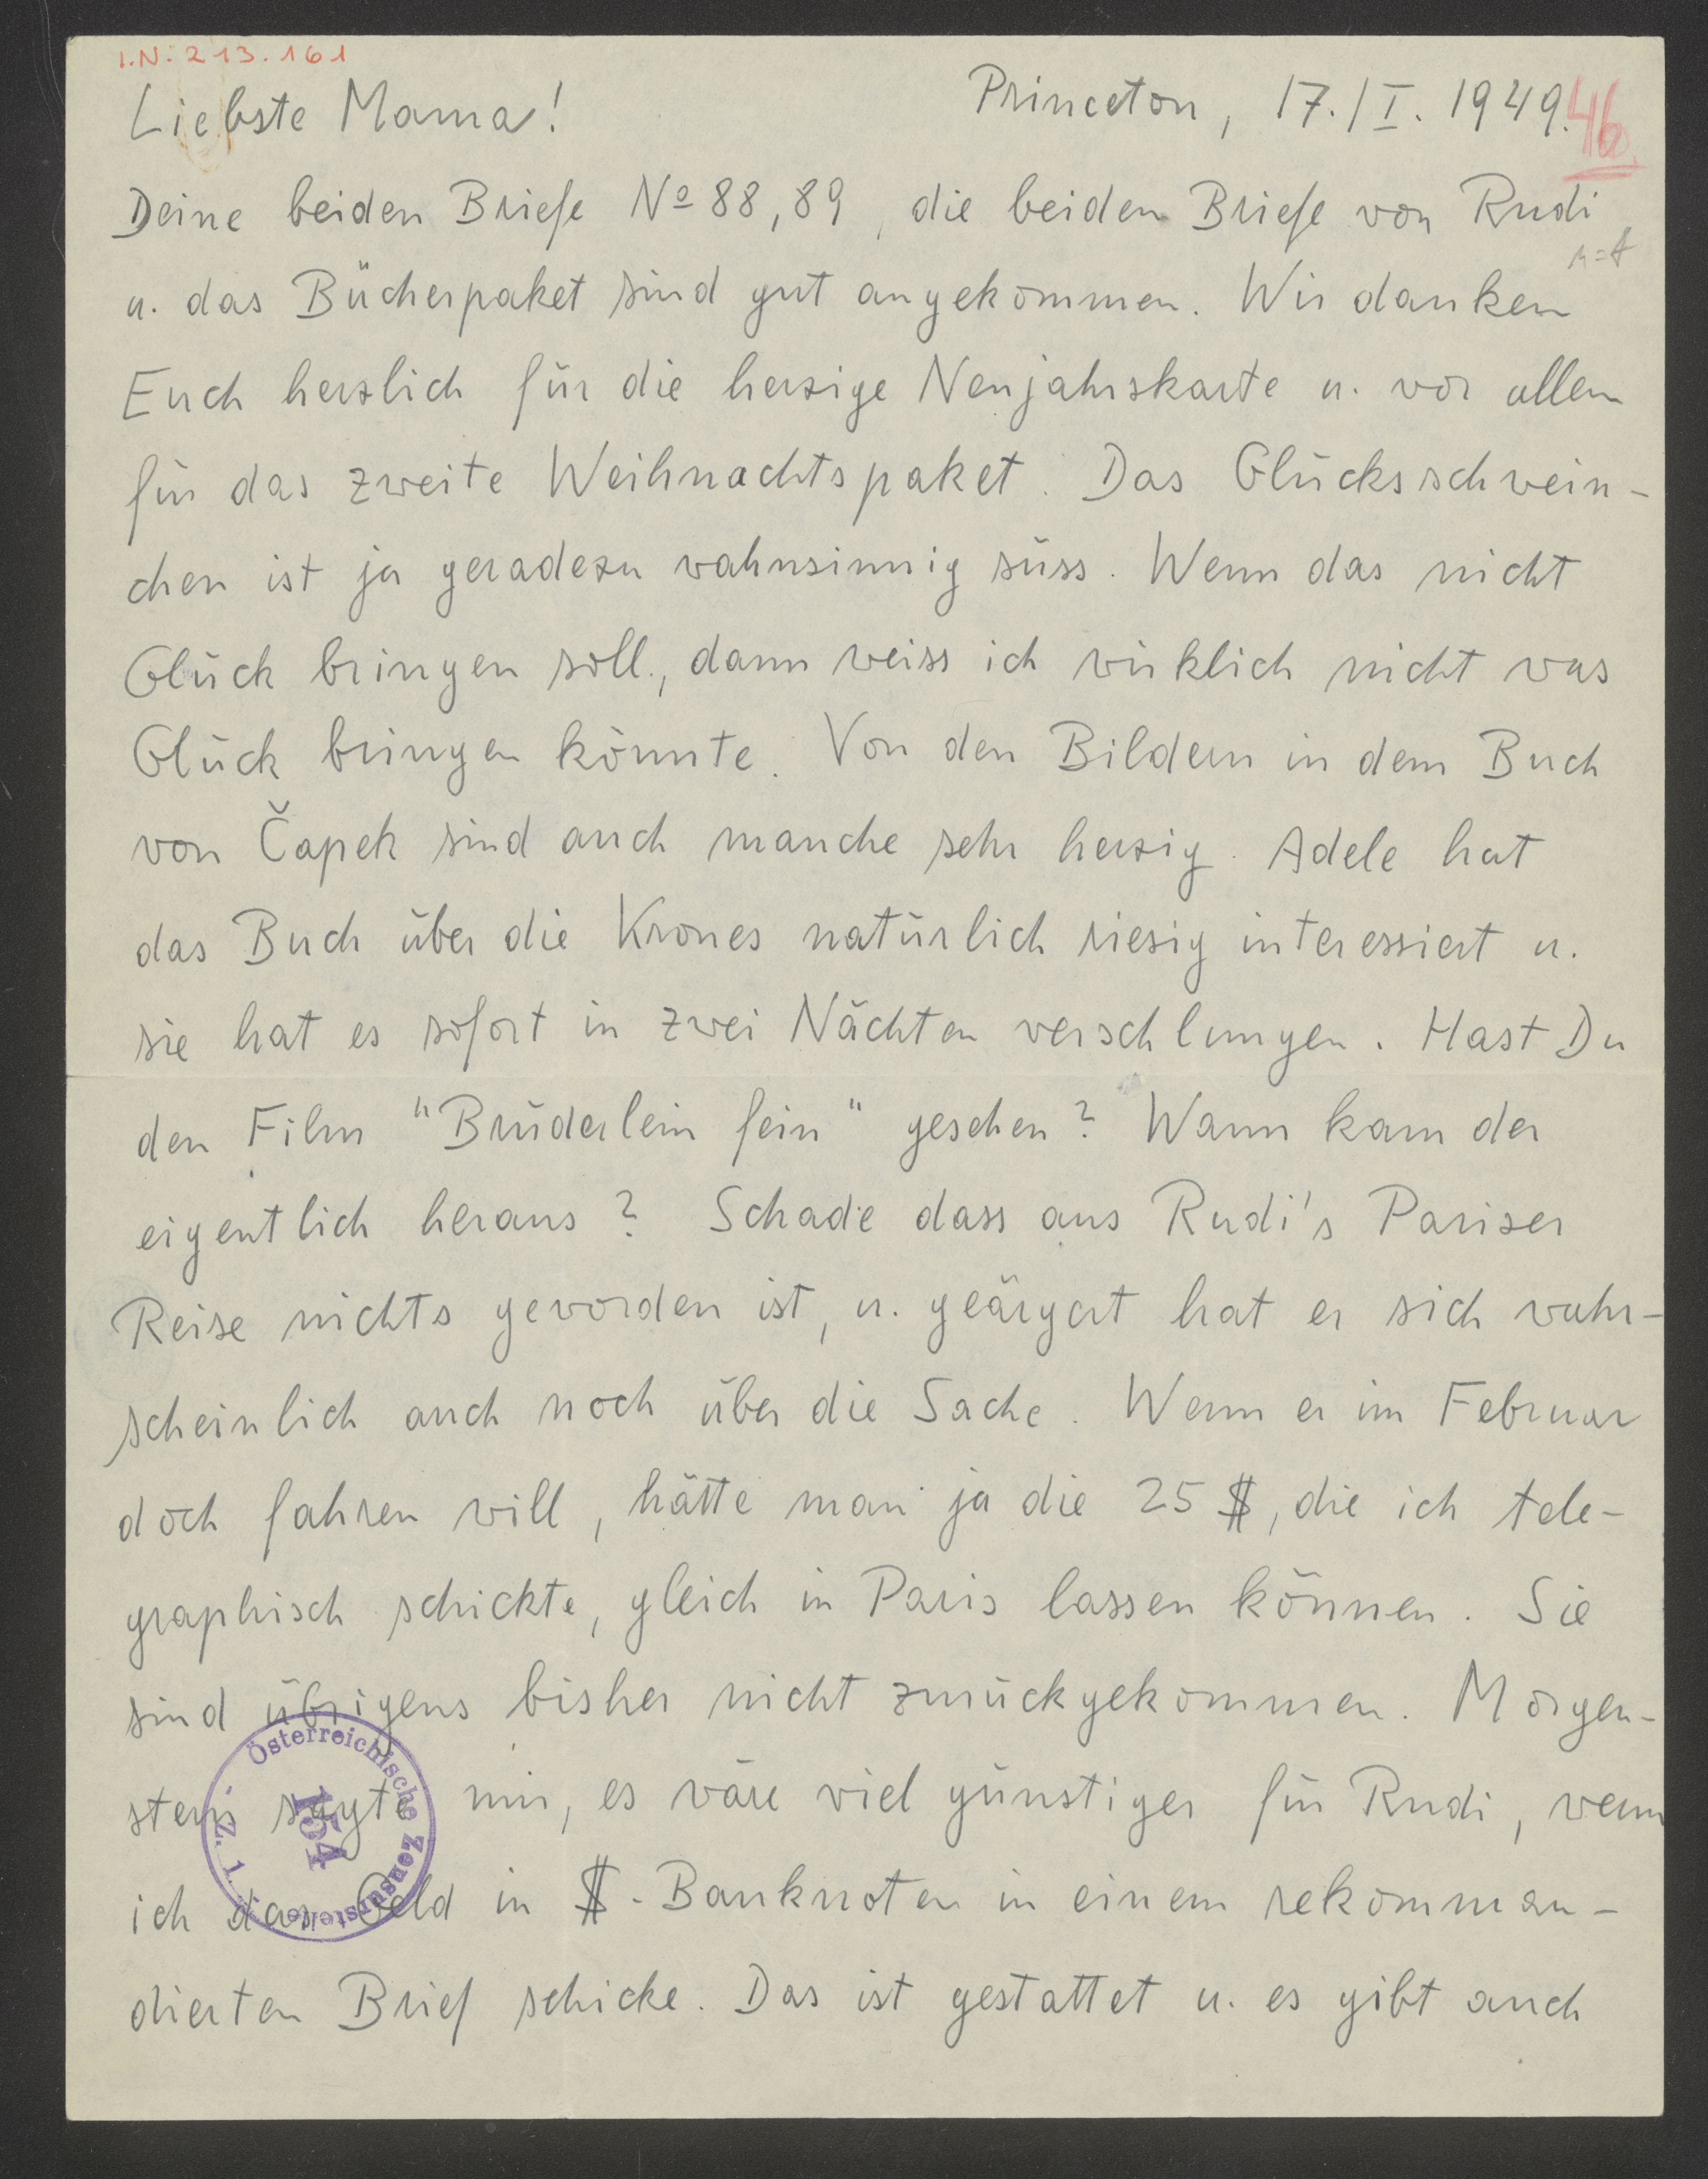 I.N. 213.161
Liebste Mama! Princeton, 17./I. 1949. 46.
Deine beiden Briefe Nº 88, 89, die beiden Briefe von Rudi
u. das Bücherpaket sind gut angekommen. Wir danken
Euch herzlich für die herzige Neujahrskarte u. vor allem
für das zweite Weihnachtspaket. Das Glücksschwein-
chen ist ja geradezu wahnsinnig süss. Wenn das nicht
Glück bringen soll, dann weiss ich wirklich nicht was
Glück bringen könnte. Von den Bildern in dem Buch
von Čapek sind auch manche sehr herzig. Adele hat
das Buch über die Krones natürlich riesig interessiert u.
sie hat es sofort in zwei Nächten verschlungen. Hast Du
den Film "Brüderlein fein" gesehen? Wann kam der
eigentlich heraus? Schade dass aus Rudi's Pariser
Reise nichts geworden ist, u. geärgert hat er sich wahr-
scheinlich auch noch über die Sache. Wenn er im Februar
doch fahren will, hätte man ja die 25 $, die ich tele-
graphisch schickte, gleich in Paris lassen können. Sie
sind übrigens bisher nicht zurückgekommen. Morgen-
stern sagte mir, es wäre viel günstiger für Rudi, wenn
ich das Geld in $-Banknoten in einem rekomman-
dierten Brief schicke. Das ist gestattet u. es gibt auch
Österreichische Zensurstelle
154